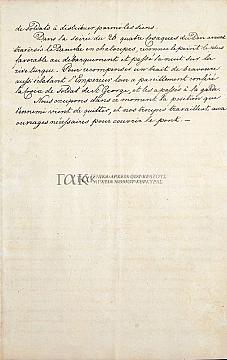 de soldats à distribuer parmi les siens.
Dans la soirée du 26 quatre Cosaques du Don avaient
traversé le Danube en chaloupes, reconnu le point le plus
favorable au débarquement et passé la nuit sur la
rive turque. Pour récompenser un trait de bravoure
aussi éclatant l'Empereur leur a pareillement conféré
la Croix de soldat de St George, et les a passés à la garde.
Nous occupons dans ce moment la position que
l'ennemi vient de quitter, et nos troupes travaillent aux
ouvrages nécessaires pour couvrir le pont. —
ΓΑΚ
ΓΕΝΙΚΑ ΑΡΧΕΙΑ ΤΟΥ ΚΡΑΤΟΥΣ